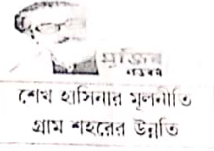 মুজিব
শেখ হাসিনার মূলনীতি
গ্রাম শহরের উন্নতি